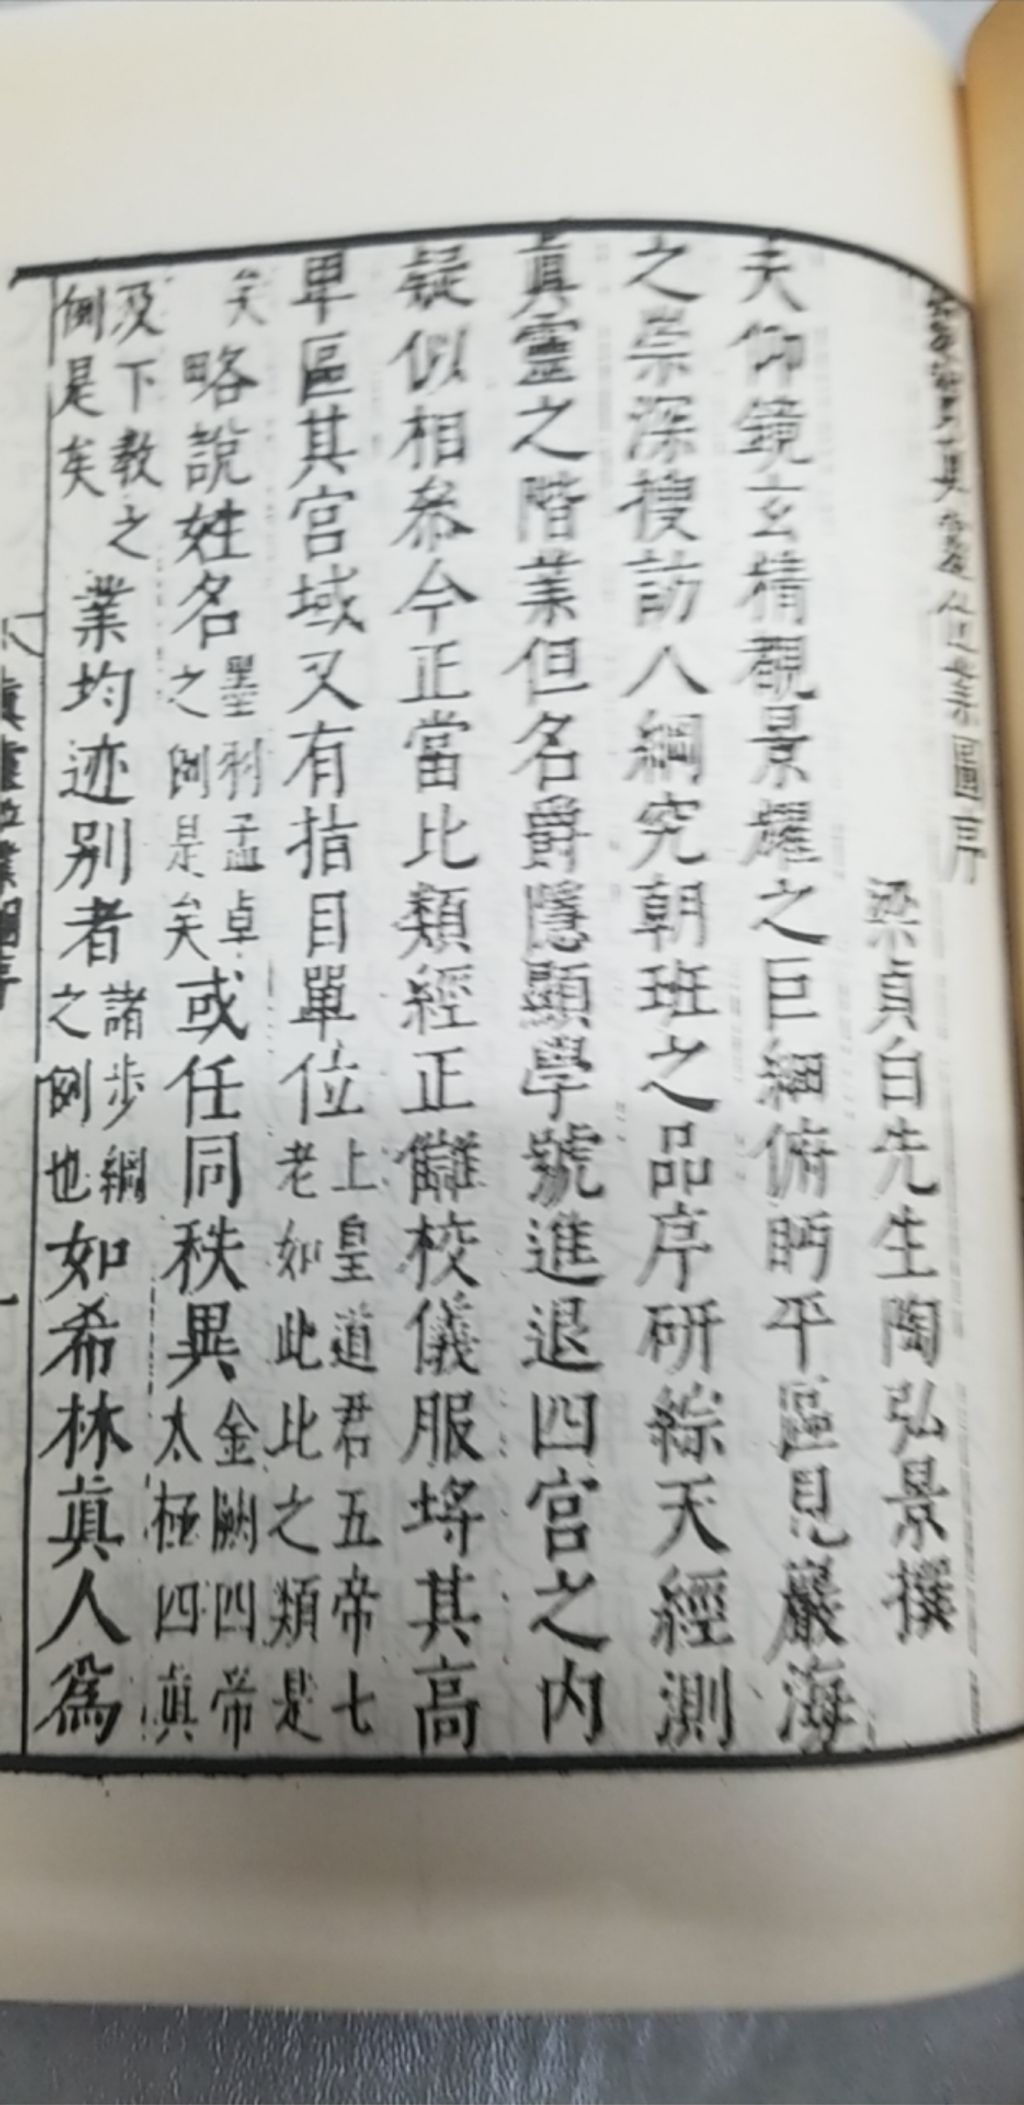 圖序
梁貞白先生陶弘景撰
夫仰鏡玄精覩景耀之巨細俯眄平區見巖海
之崇深搜訪人綱究朝班之品序研綜天經測
真靈之階業但名爵隱顯學號進退四宮之内
疑似相參今正當比類經正讎校儀服埒其高
卑區其宮域又有指目單位上皇道君五帝七老如此此之類是
矣略說姓名墨羽孟卓之例是矣或任同秩異金闕四帝太極四真
及下教之例是矣業均迹別者諸步綱之例也如希林真人爲